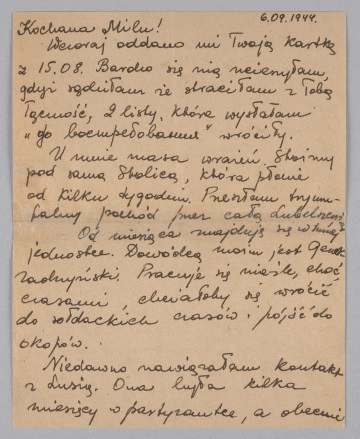 6.09.1944.
Kochana Milu!
Wczoraj oddano mi Twoją kartkę
z 15.08. Bardzo się nią ucieszyłam,
gdyż sądziłam że straciłam z Tobą
łączność, 2 listy, które wysłałam
"do востребования" wróciły.
U mnie masa wrażeń. Stoimy
pod samą Stolicą, która płonie
od kilku tygodni. Przeszłam tryum-
falny pochód przez całą Lubelszcz.
Od miesiąca znajduję się w innej
jednostce. Dowódcą moim jest
Pracuje się nieźle, choć
czasami, chciałoby się wrócić
do sołdackich czasów i pójść do
okopów.
Niedawno nawiązałam kontakt
z Lusią. Ona była kilka
miesięcy w partyzantce, a obecnie